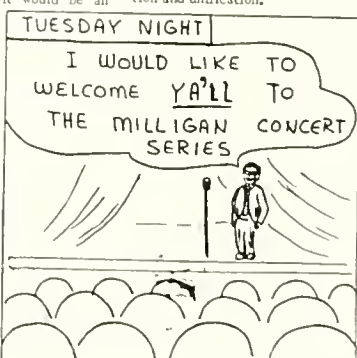 it would be an tion and unification.
TUESDAY NIGHT
I WOULD LIKE TO
WELCOME YA'LL TO
THE MILLIGAN CONCERT
SERIES